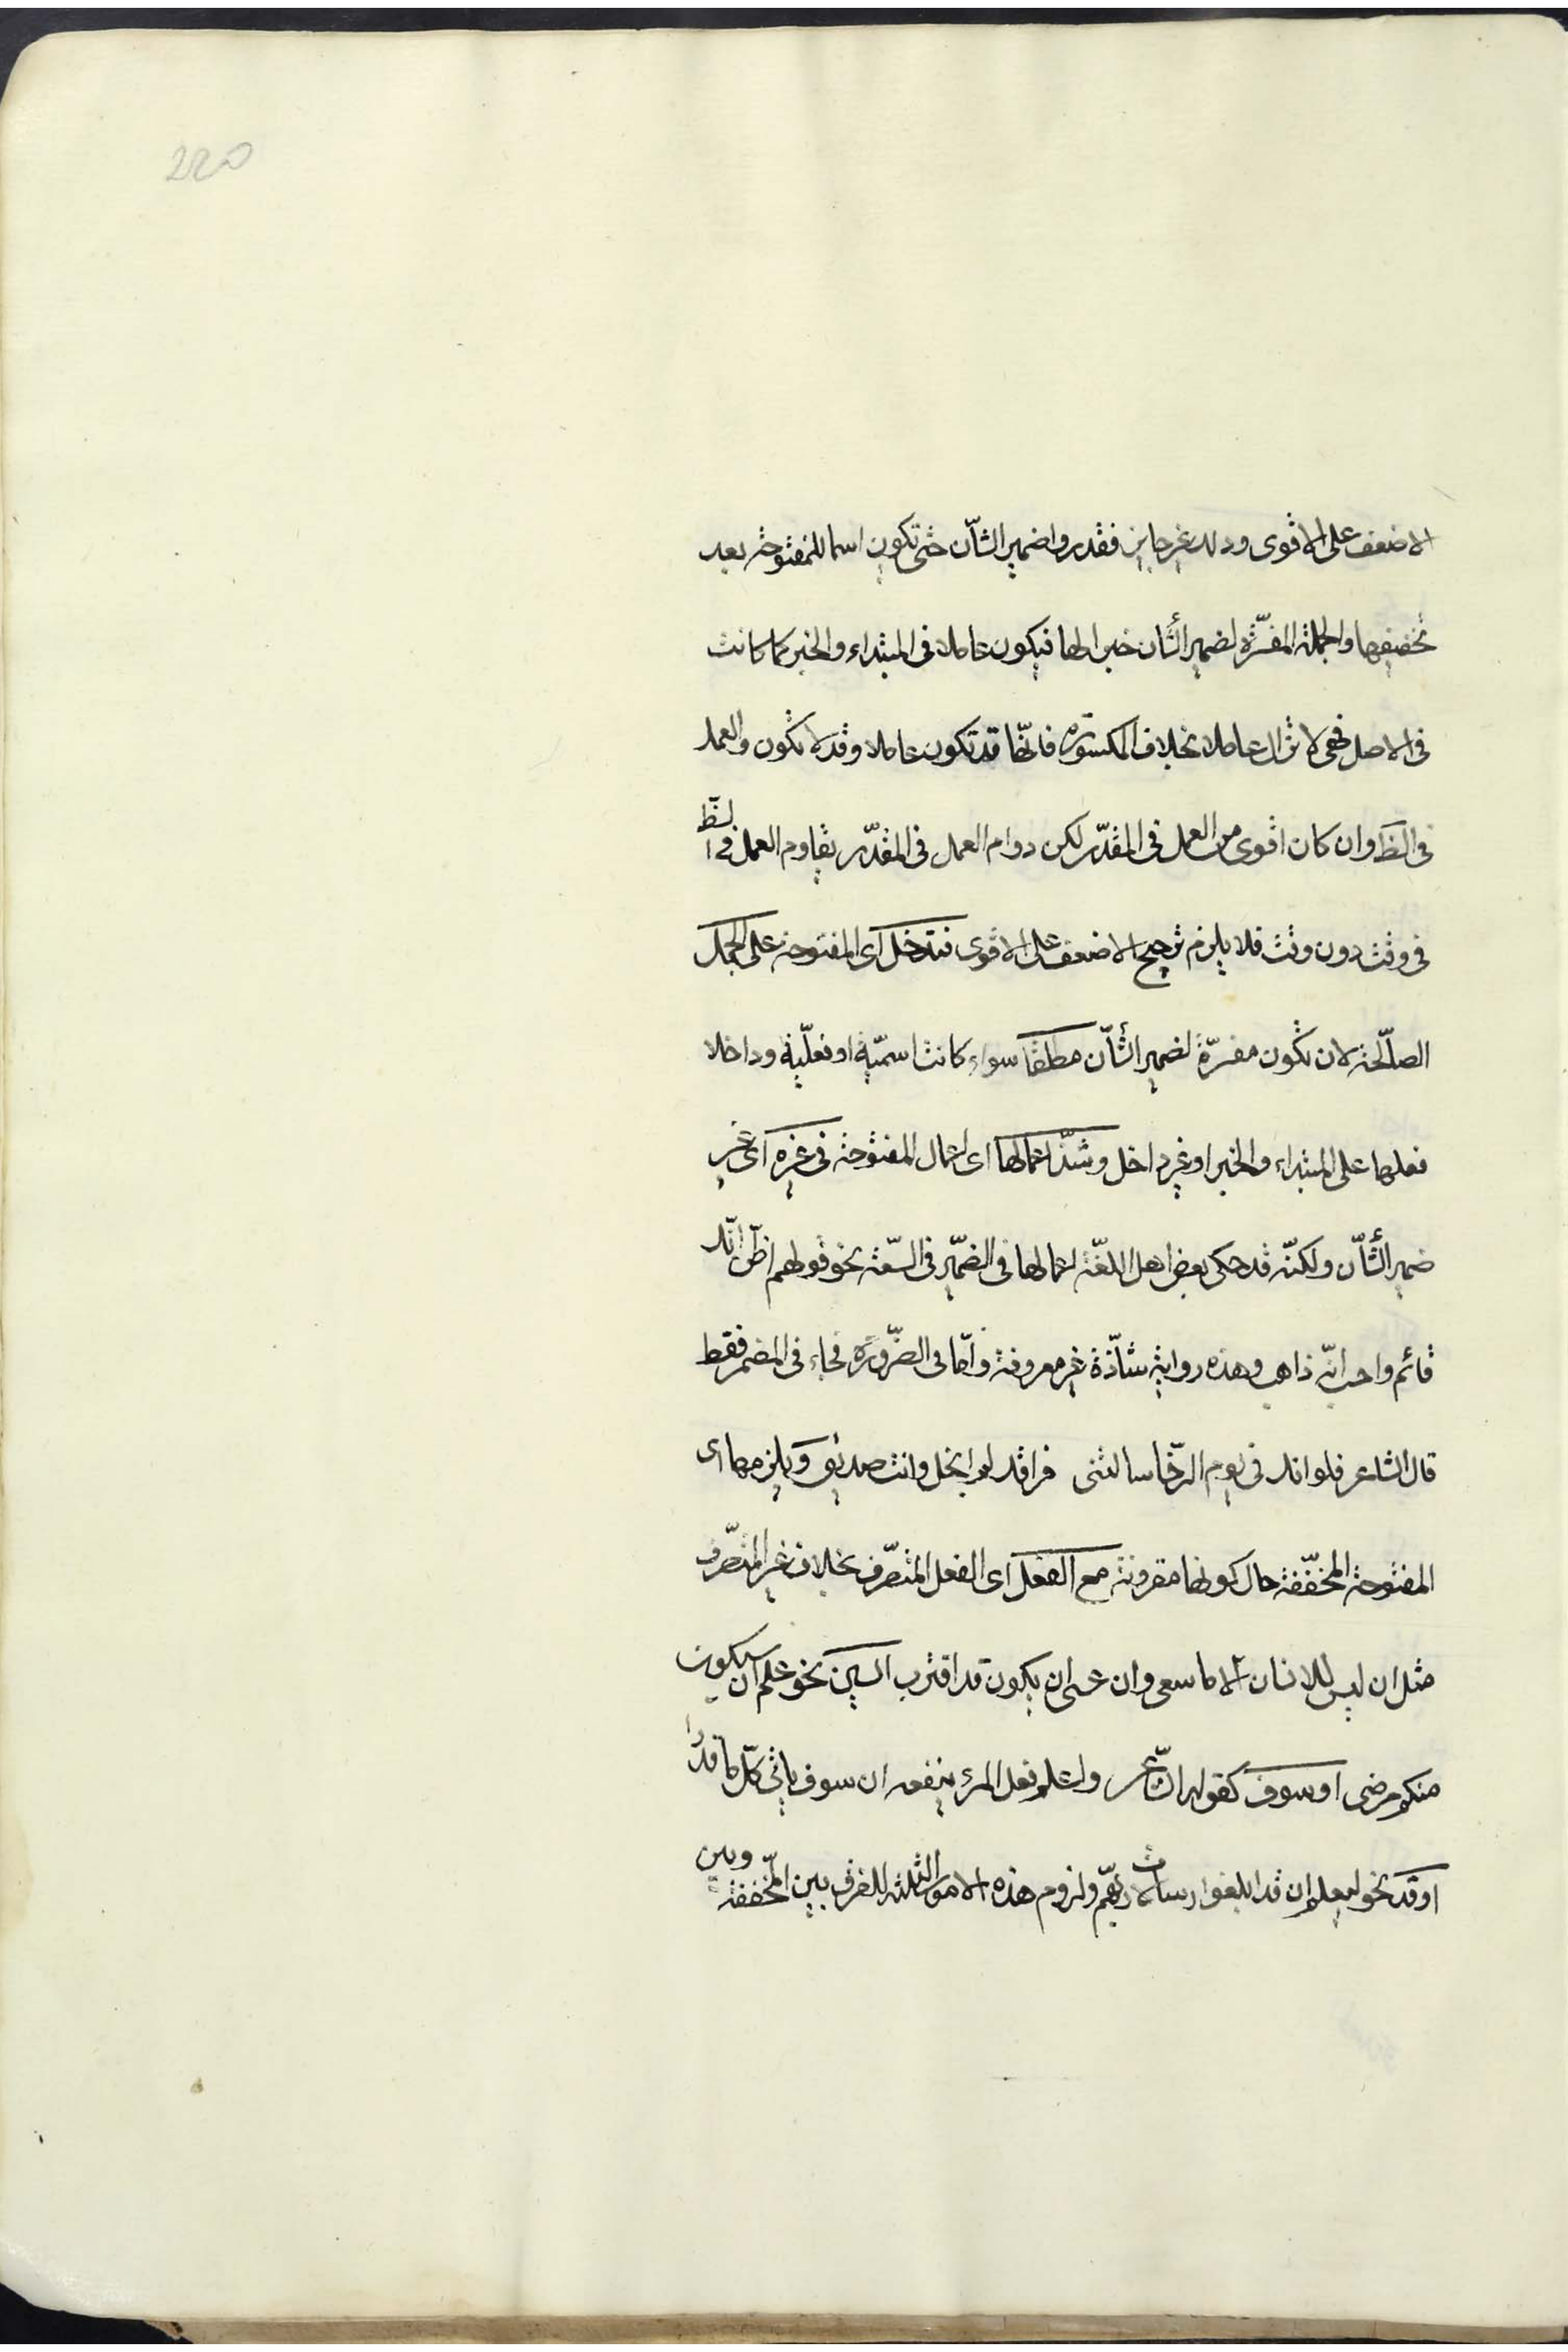 220
الاضعف على الاقوى وذلك غير جايز فقدروا ضمير الشأن حتى تكون اسما للمفتوحة بعد
تخفيفها والجملة المفسّرة لضمير الشأن خبرا لها فيكون عاملا فى المبتداء والخبر كما كانت
فى الاصل فهى لا تزال عاملا بخلاف المكسورة فانّها قد تكون عاملا وقد لا تكون والعمل
فى الظ وان كان اقوى من العمل فى المقدّر لكن دوام العمل فى المقدّر يقاوم العمل فى الظ
فى وقت دون وقت فلا يلزم ترجيح الاضعف على الاقوى فتدخل اى المفتوحة على الجمل
الصالحة لان تكون مفسّرة لضمير الشأن مطلقا سواء كانت اسمّية او فعلّية وداخلا
فعلها على المبتداء والخبر او غير داخل وشذّ اعمالها اى اعمال المفتوحة فى غيره اى غير
ضمير الشأن ولكنّه قد حكى بعض اهل اللغّة اعمالها فى الضمّير فى السّعة نحو قولهم اظنّ انّك
قائم واحسب انّه ذاهب وهذه رواية شاّذة غير معروفة وامّا فى الضّرورة فجاء فى المضمر فقط
قال الشاعر فلو انك فى يوم الرّخا سالتنى فراقك لم ابخل وانت صديق ويلزمها اى
المفتوحة المخفّفة حال كونها مقرونة مع الفعل اى الفعل المتصّرف بخلاف غير المتصّرف
مثل ان ليس للانسان الا ما سعى وان عسى ان يكون قد اقترب السين نحو علم ان سيكون
منكم مرضى او سوف كقول الشّاعر واعلم فعلم المرء ينفعه ان سوف ياتى كلّ ما قدرا
او قد نحو ليعلم ان قد ابلغوا رسالات ربهّم ولزوم هذه الامور الثلثة للفرق بين المخّففة وبين